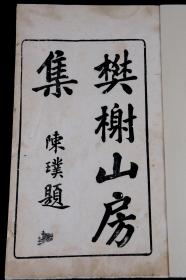 樊榭山房
集
陳璞題